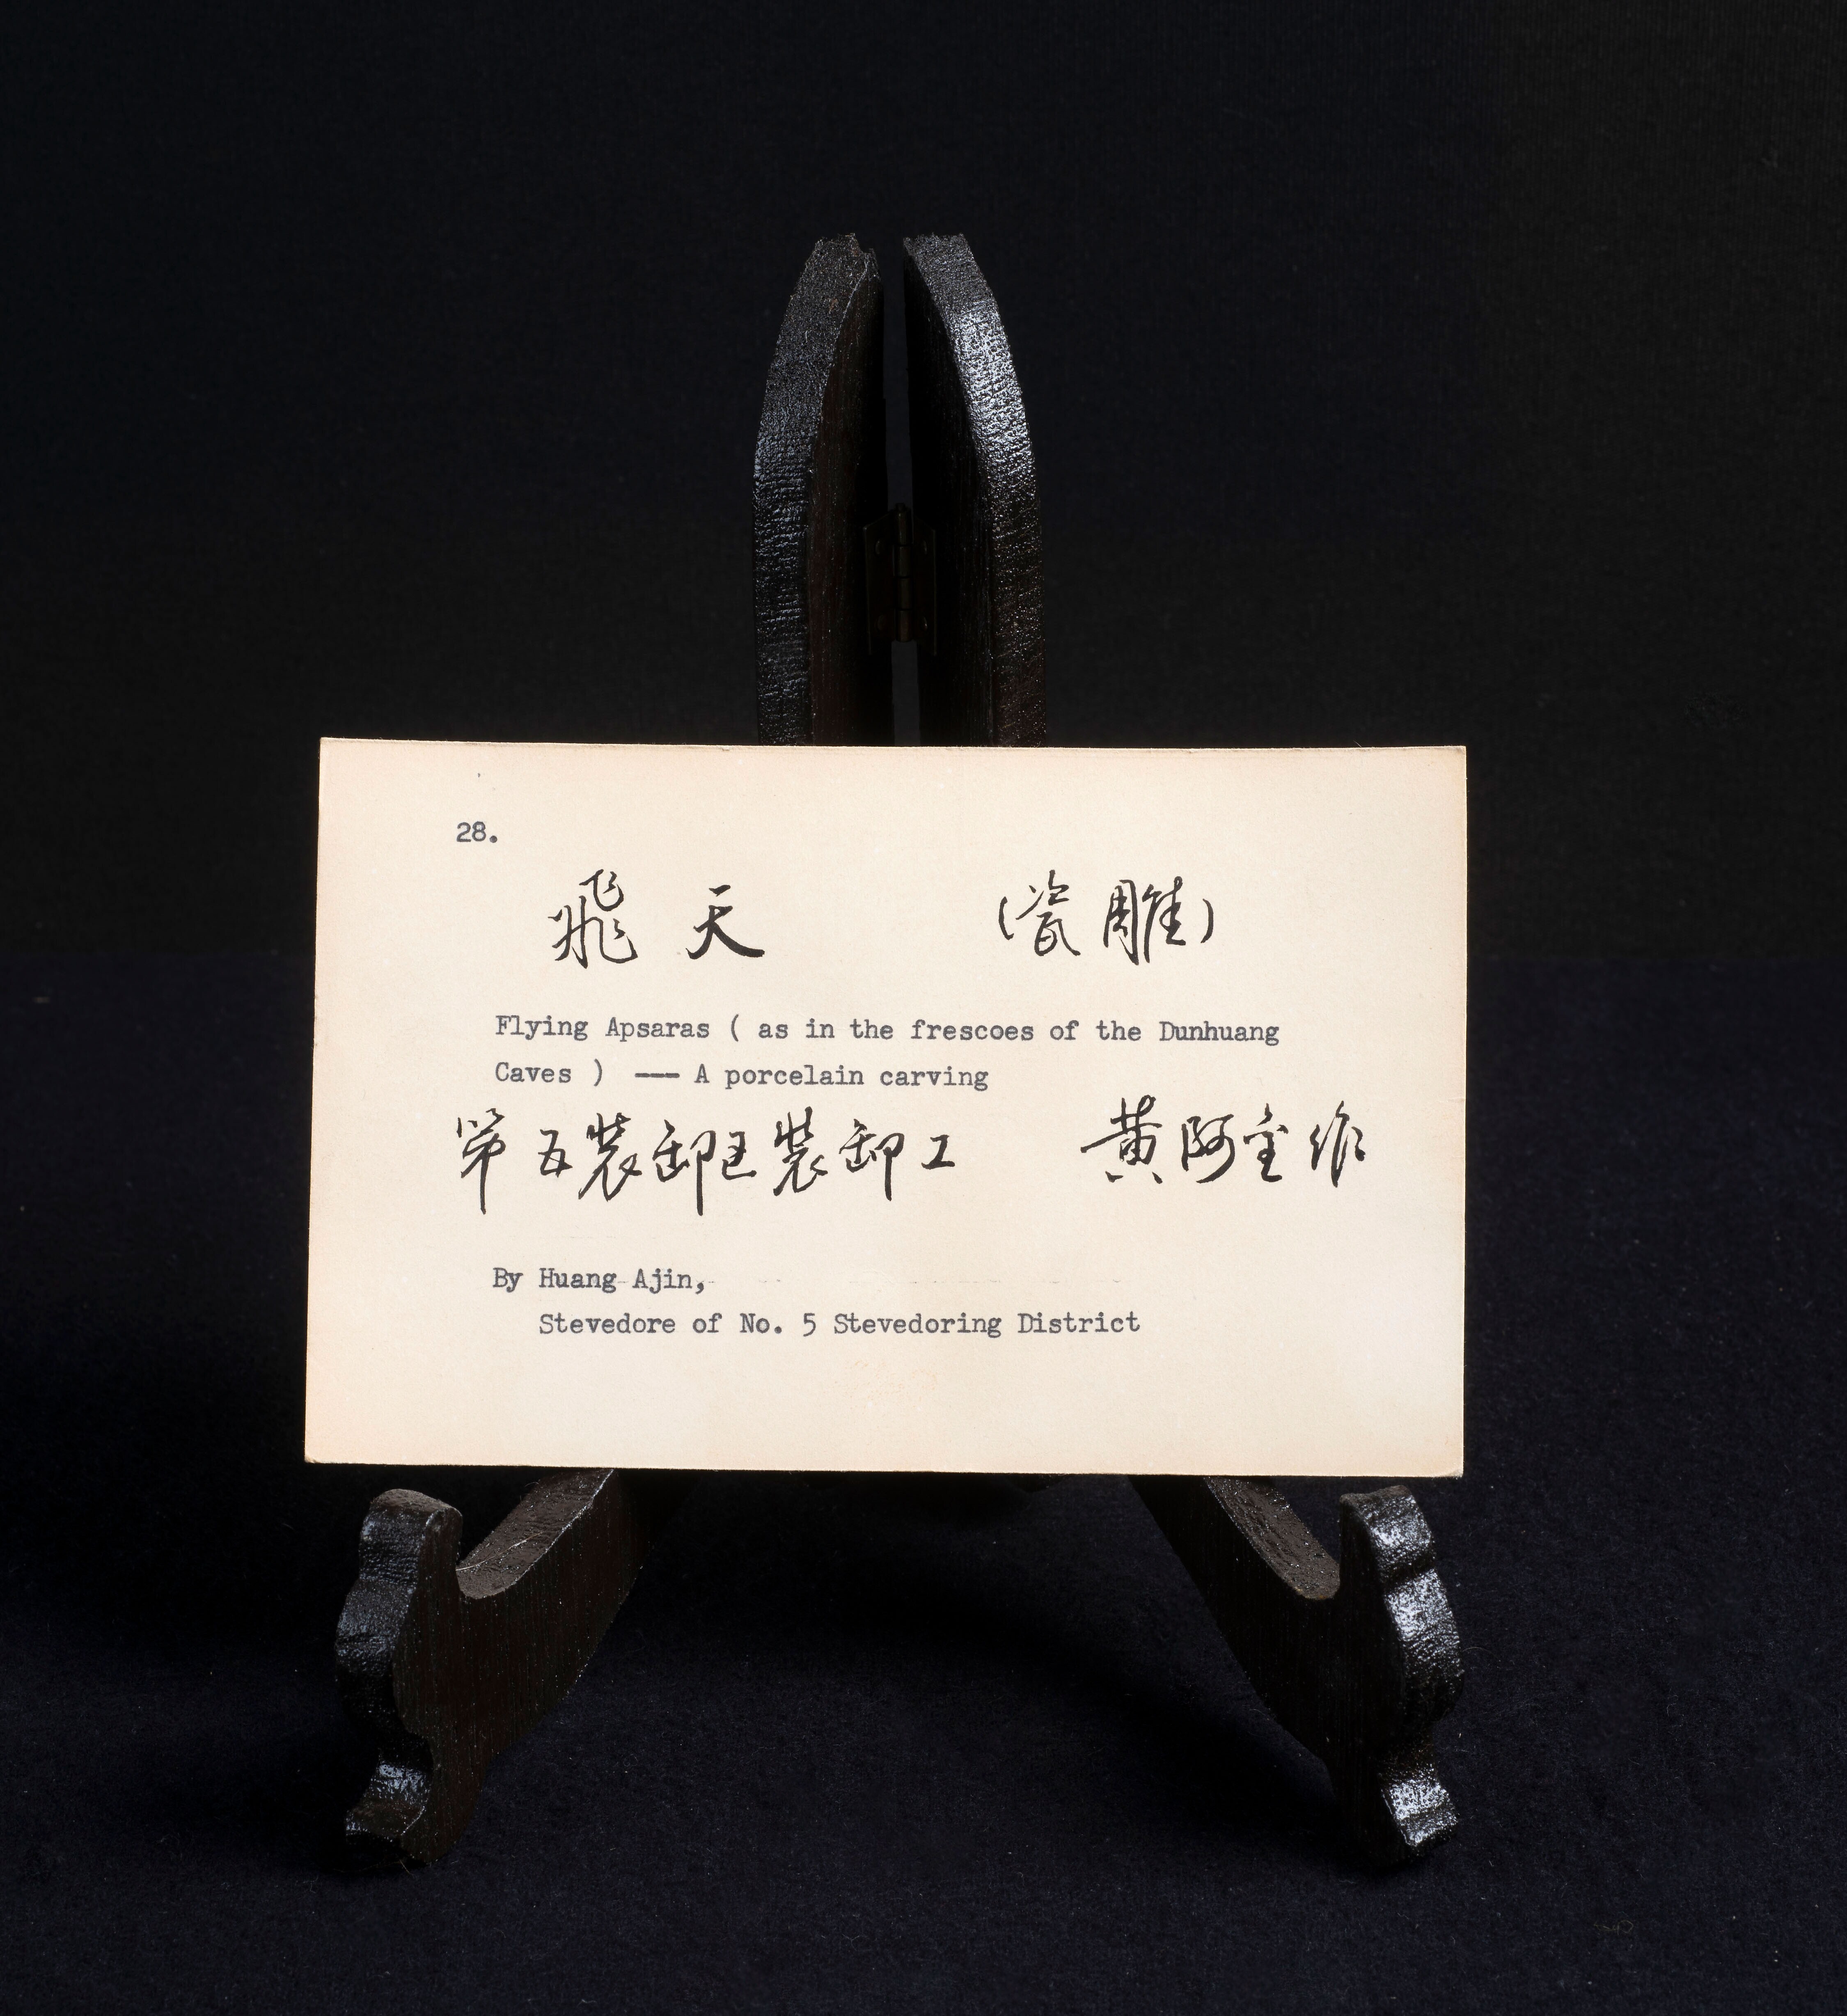 28.
飛天 (瓷雕)
Flying Apsaras ( as in the frescoes of the Dunhuang
Caves ) --- A porcelain carving
第五裝卸区裝卸工 黄阿金作
By Huang Ajin,
Stevedore of No. 5 Stevedoring District